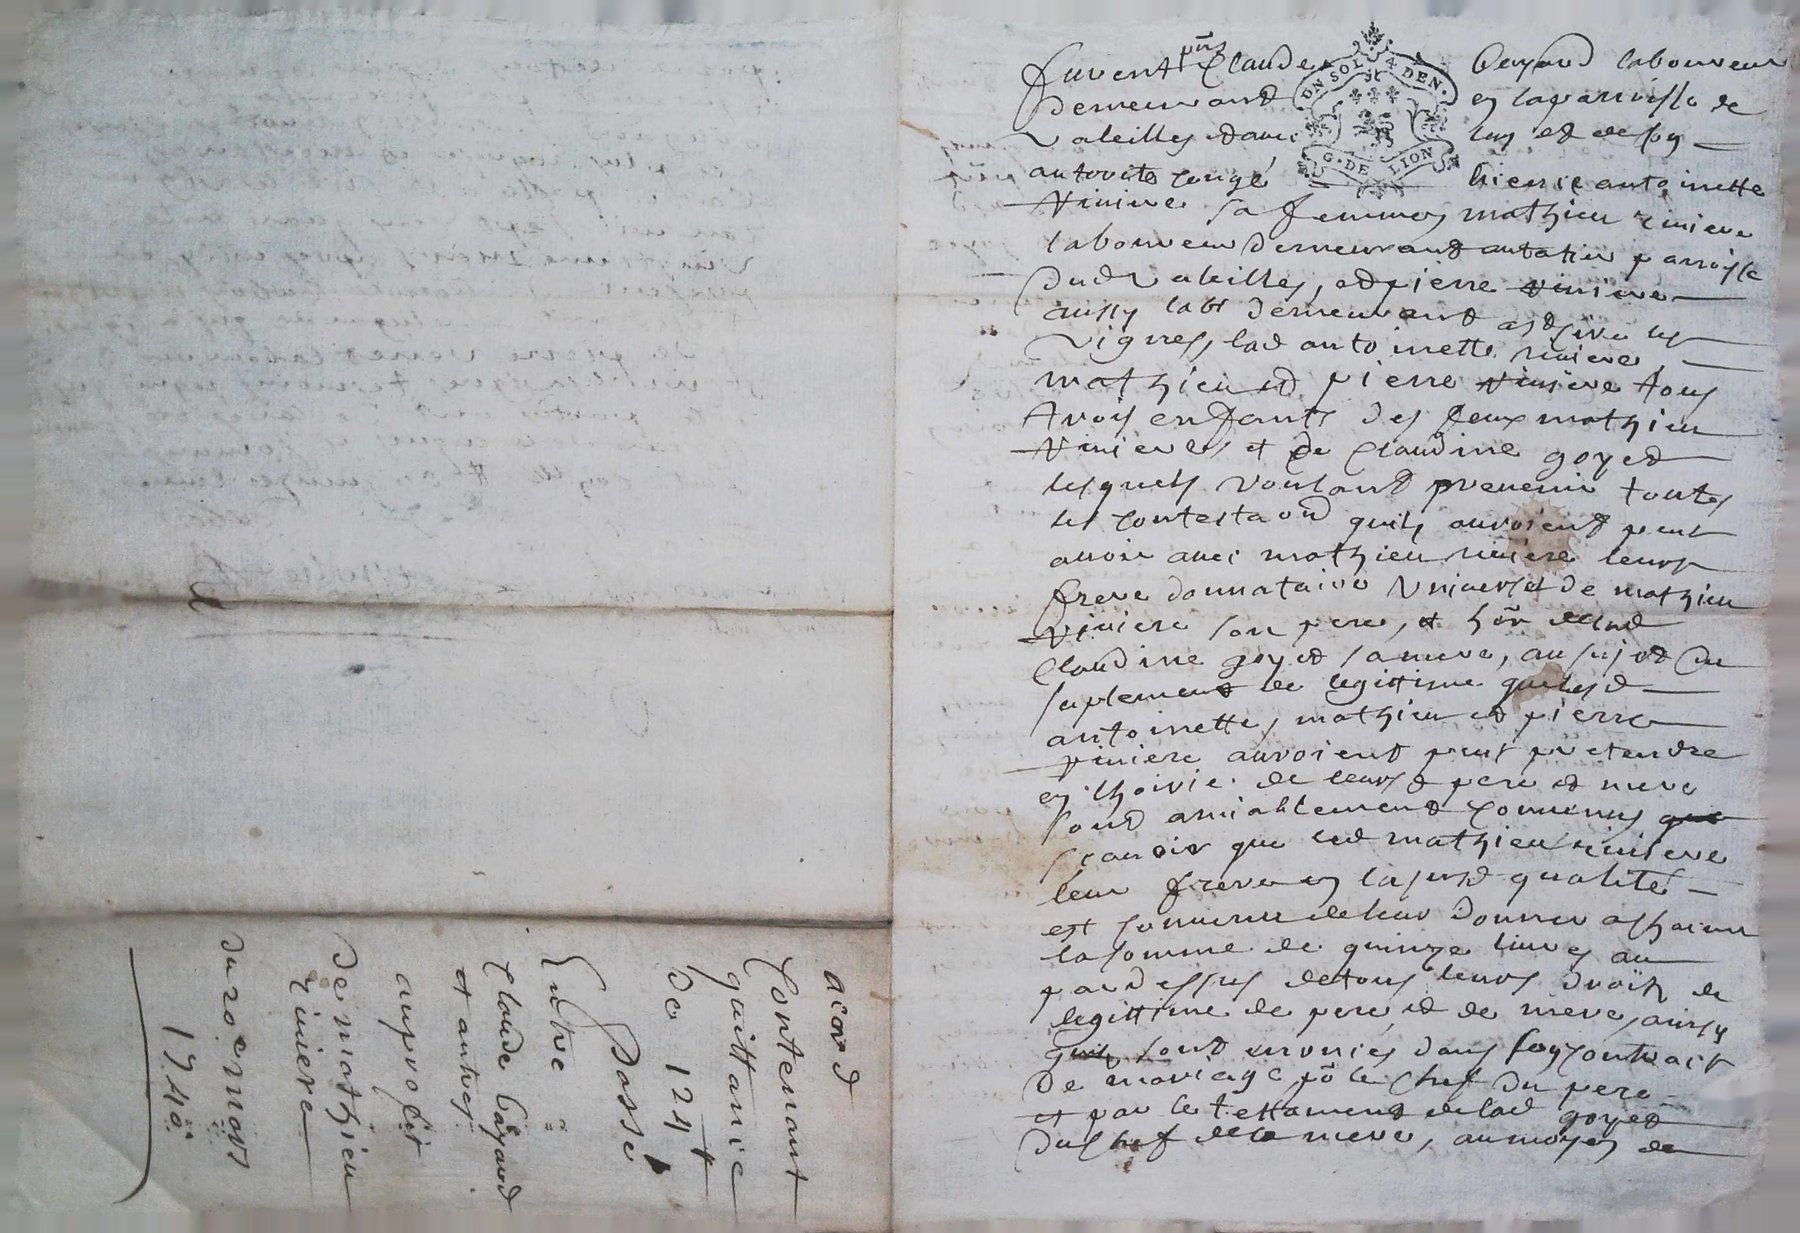 acord
Contenant
quittance
de 124 ₶
Passé
Entre
Claude Cayard
et autres
au profit
de mathieu
riviere
du 20e mars
1740
furent pñts Claude Beyard laboureur
UN SOL 4 DEN.
G. DE LION
demeurant en la parroisse de
Valeilles et avec luy et de son
autorité congé hienie antoinette
riviere sa femme, mathieu riviere
laboureur demeurant parroisse
dud Valeilles, et pierre riviere
aussy labr demeurant
vignes, lad antoinette riviere
mathieu et pierre riviere tous
trois enfants des feux mathieu
riviere et de Claudine goyet
lesquels voulant prevenir toutes
les contestaon quils auroient peut
avoir avec mathieu riviere leur
frere donnataire universel de mathieu
riviere son pere, et hër de lad
Claudine goyet sa mere, au sujet du
suplement de legittime que lesd
antoinette, mathieu et pierre
riviere auroient peut pretendre
en lhoirie de leursd pere et mere
sont amiablement convenus
scavoir que led mathieu riviere
leur frere en la susd qualité
est convenu de leur donner a chacun
la somme de quinze livres au
par dessus de tous leurs droits de
legittime de pere et de mere, ainsy
quils sont enonces dans son contract
de mariage pö le chef du pere
et par le testament de lad goyet
du chef de la mere, au moyen de